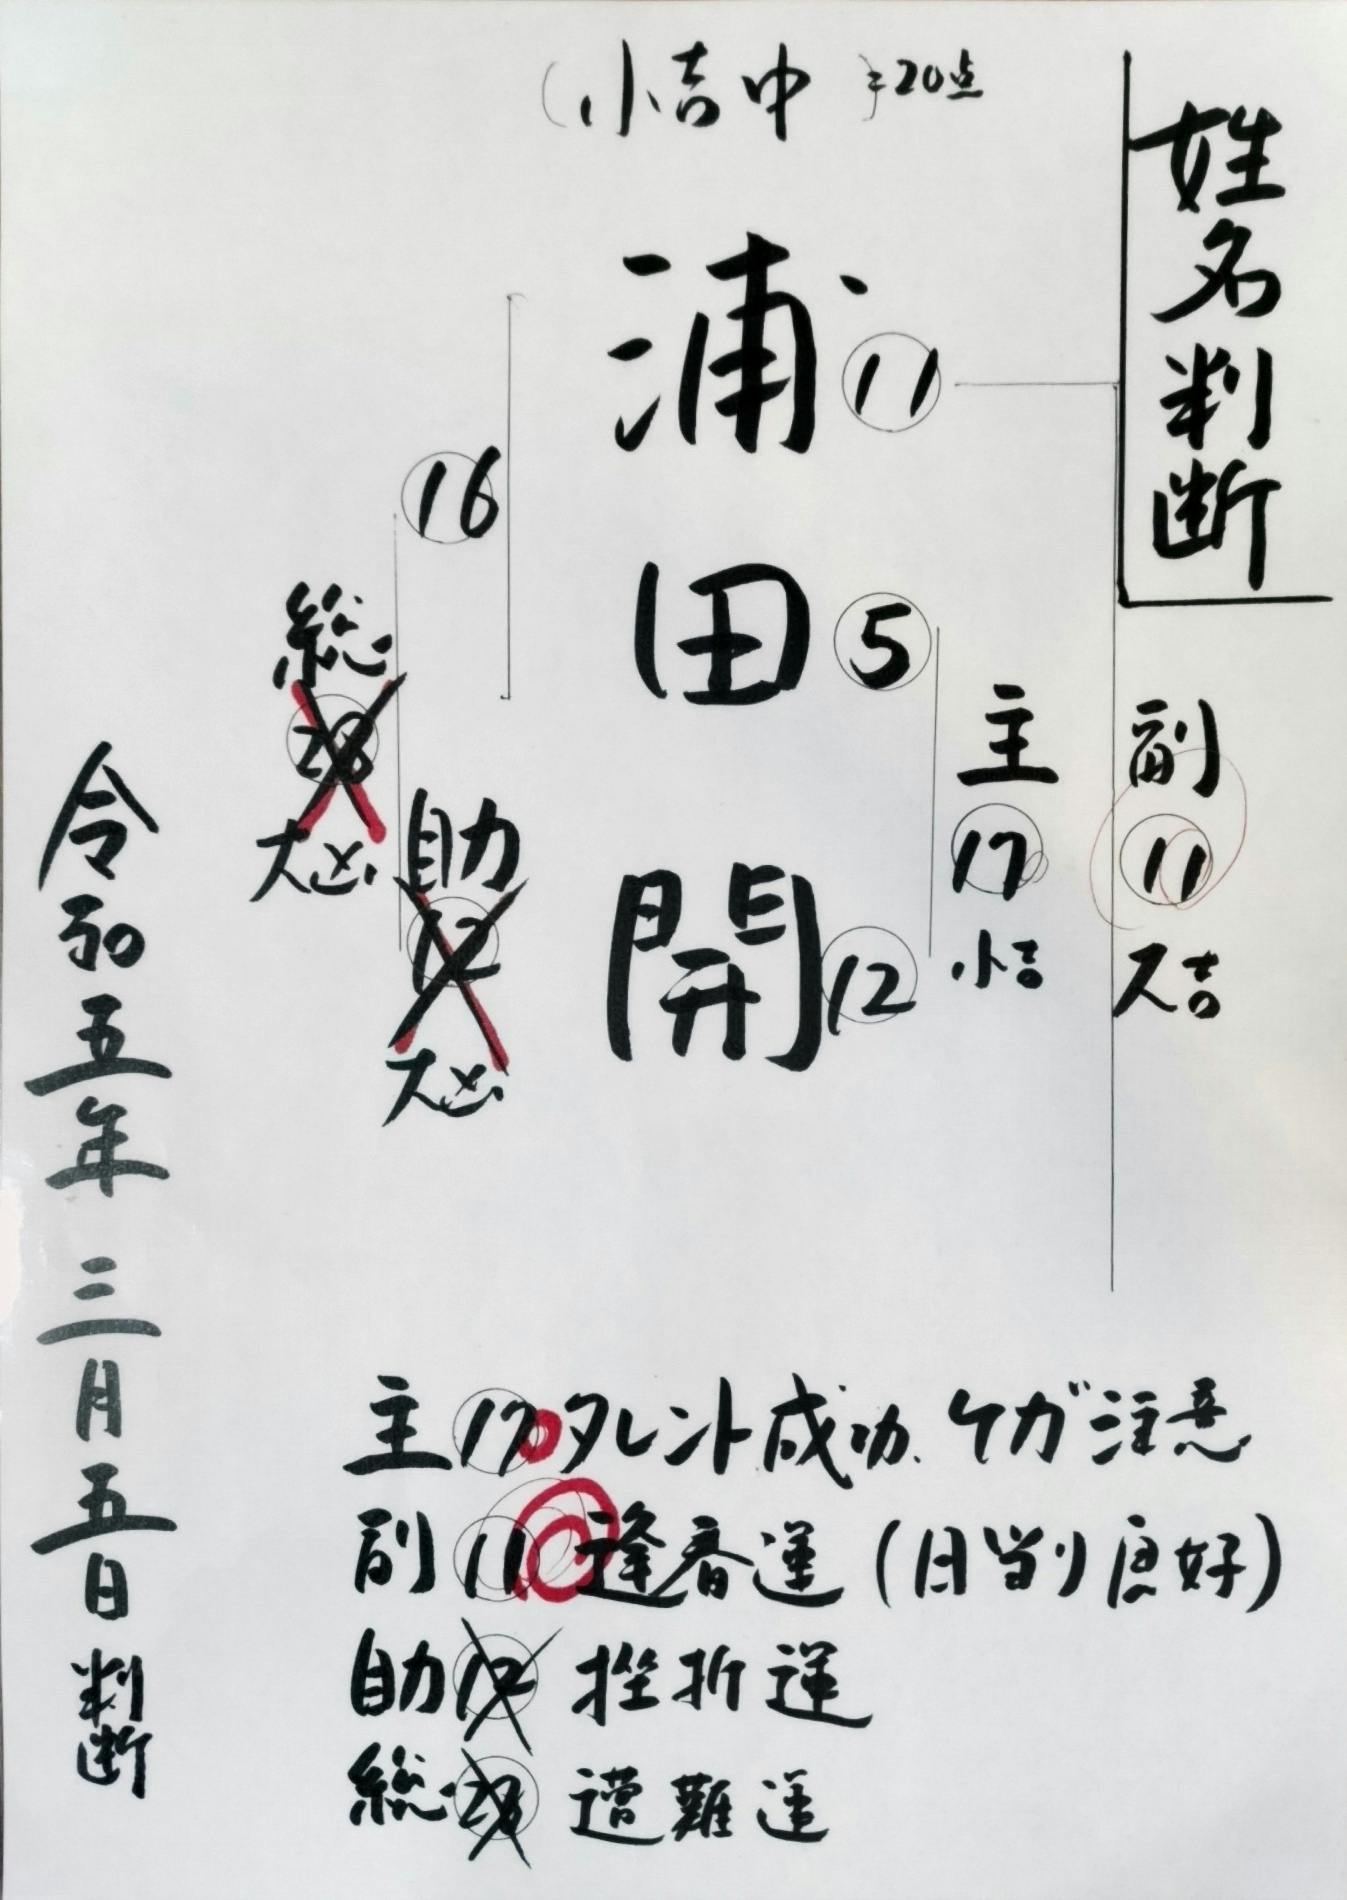 姓名判断
(小吉中)=20点
浦 11
田 5
開 12
16
主 17 小吉
副 11 大吉
助 12 大凶
総 28 大凶
主 17 タレント成功、ケガ注意
副 11 逢春運(日当り良好)
助 12 挫折運
総 28 遭難運
令和五年三月五日判断